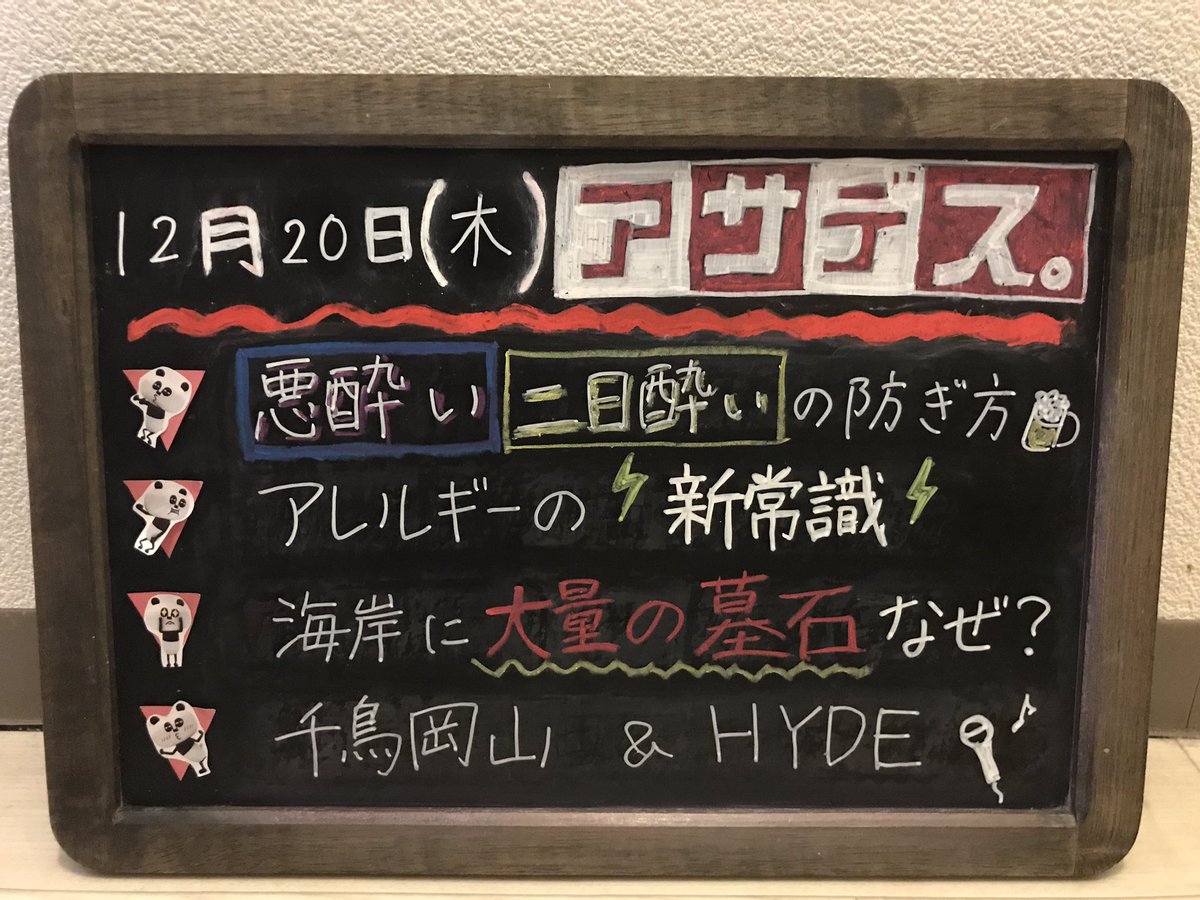 12月20日(木) アサデス。
悪酔い 二日酔い の防ぎ方
アレルギーの 新常識
海岸に 大量の墓石 なぜ?
千鳥岡山 & HYDE